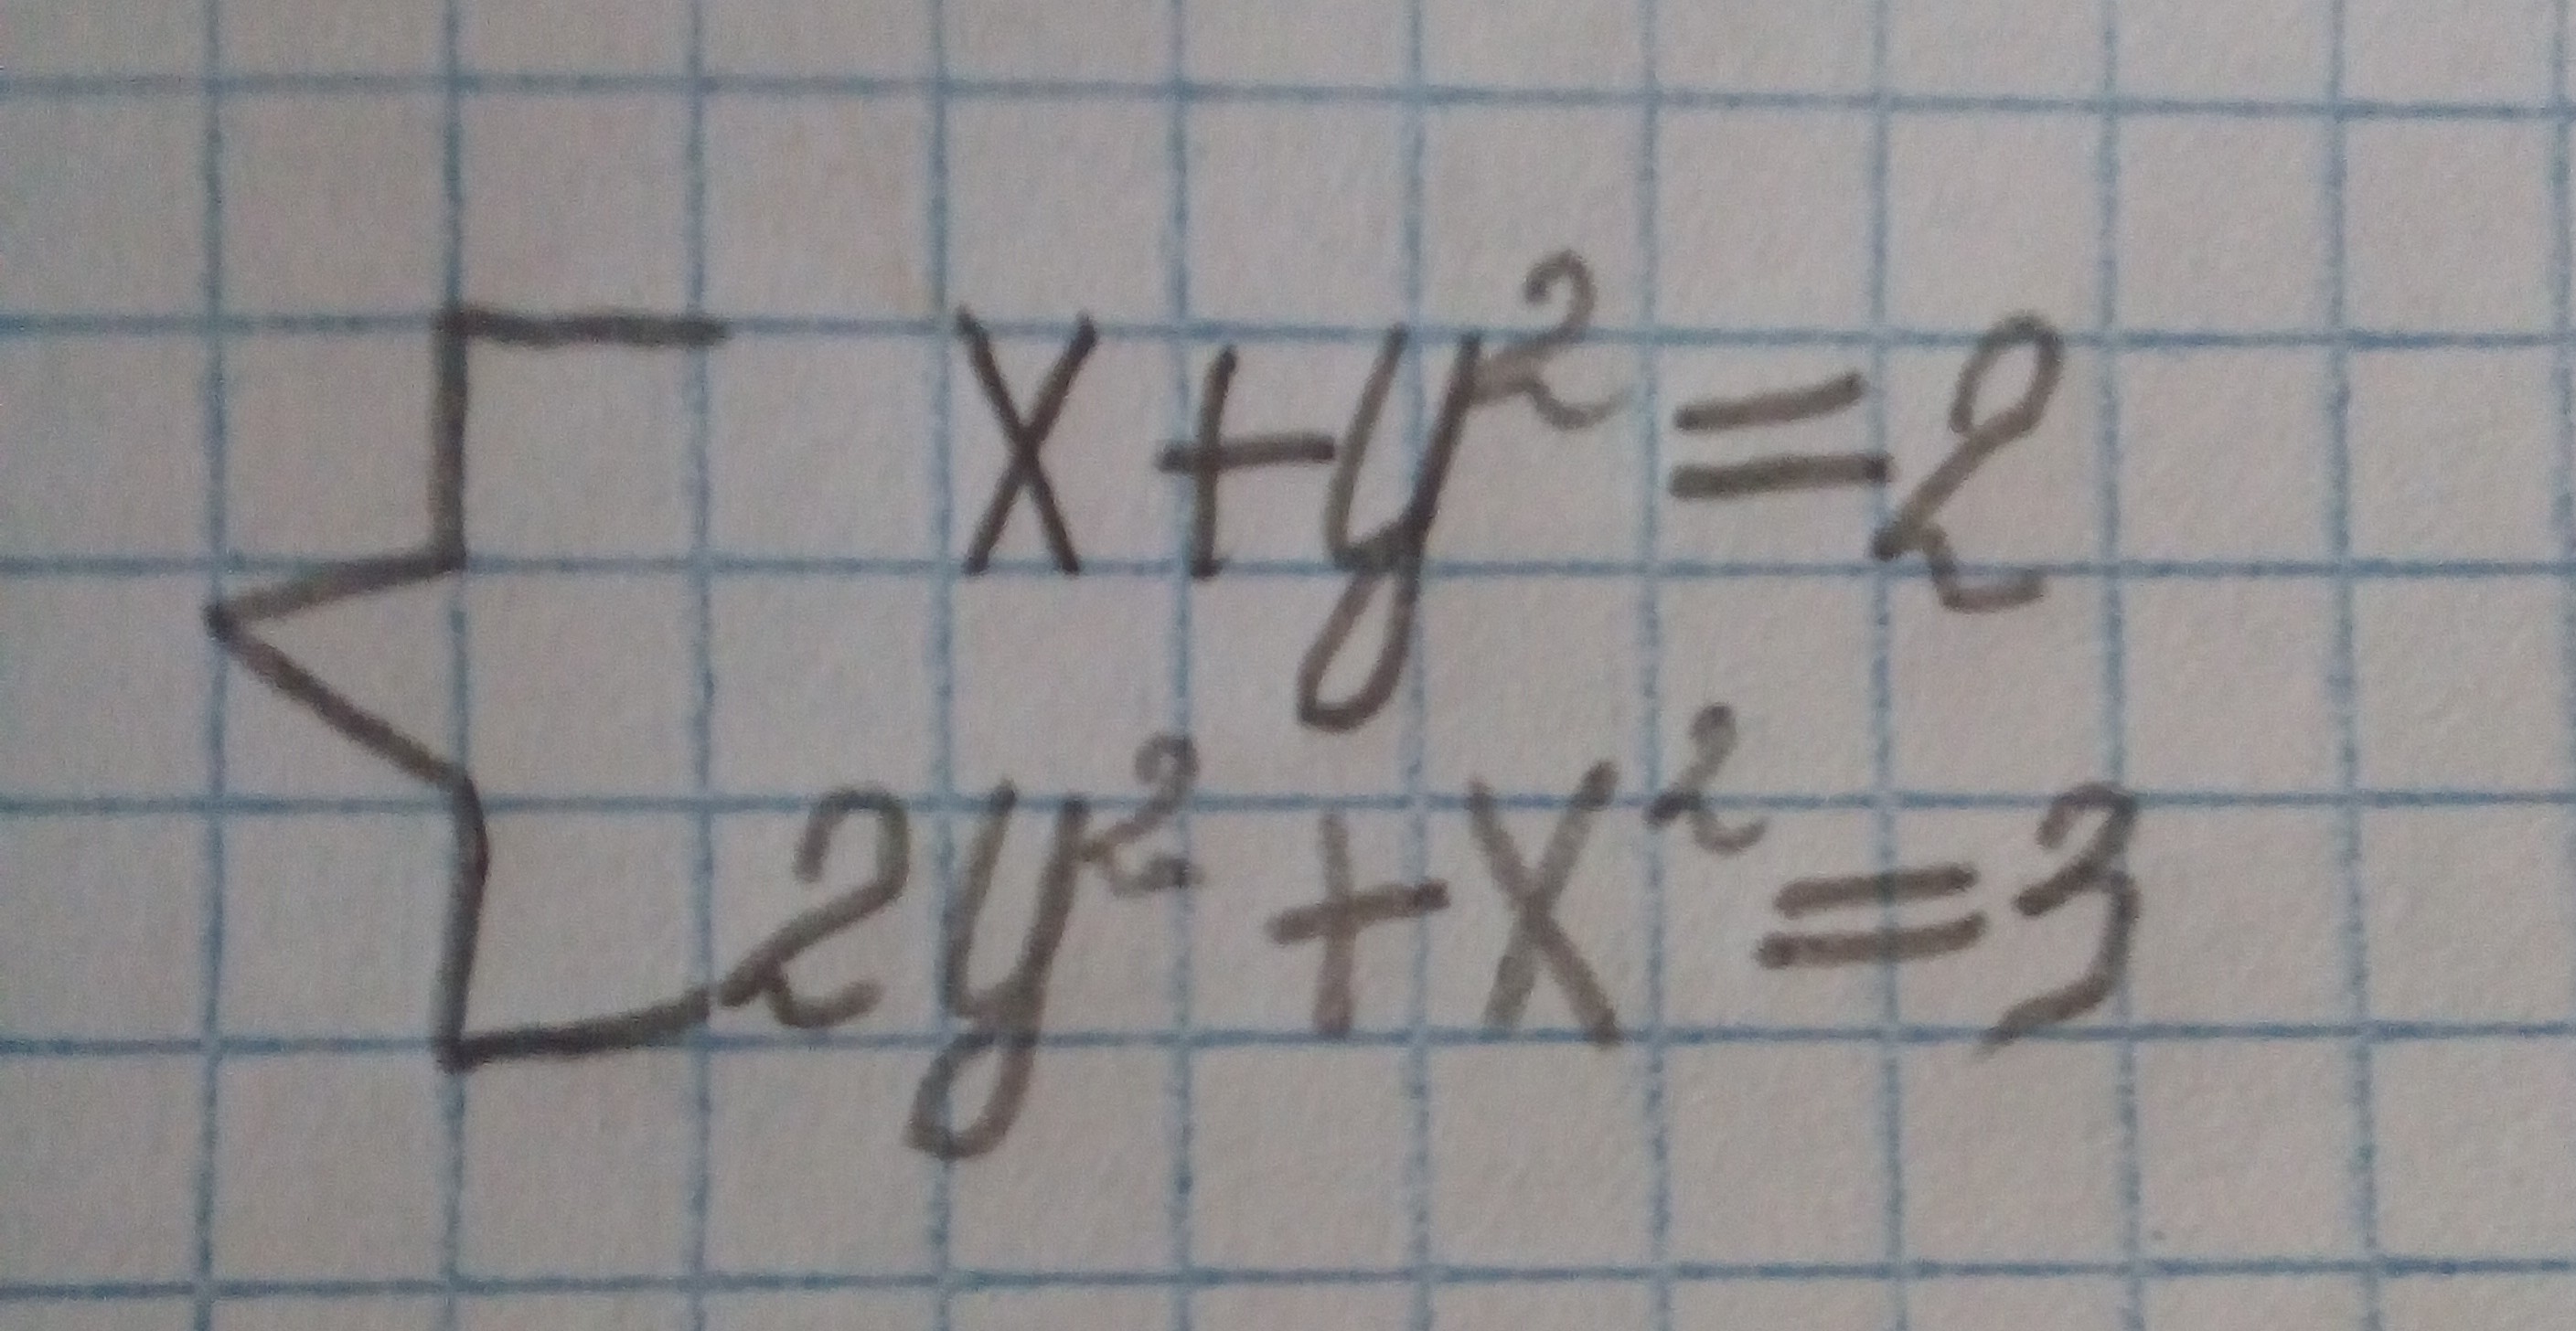 x+y²=2
2y²+x²=3